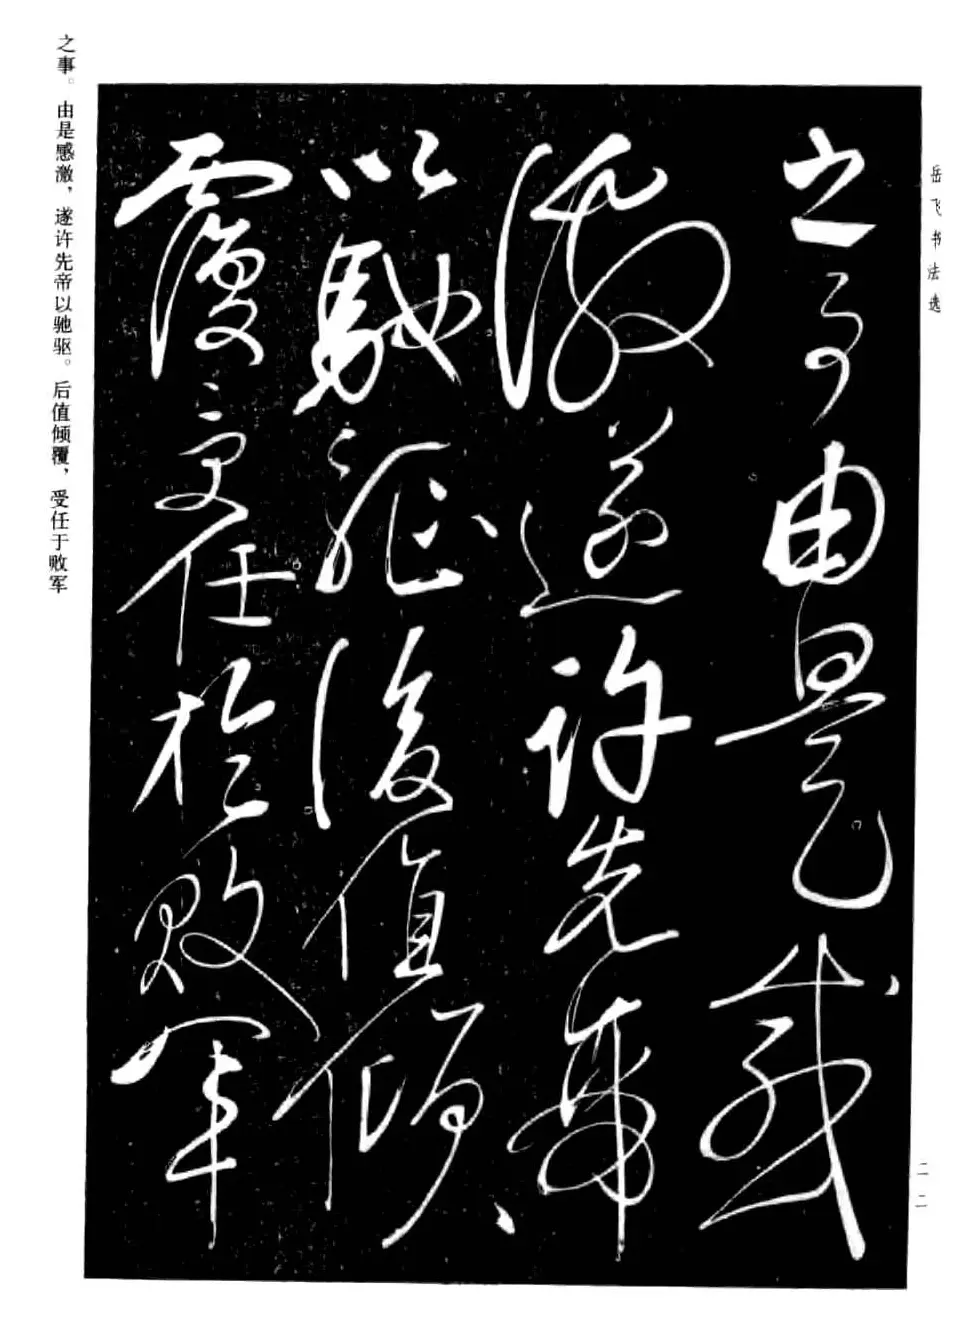 岳飞书法选
二二
之事由是感
激遂許先帝
以馳驅後值傾
覆受任於敗軍
之事。由是感激，遂许先帝以驰驱。后值倾覆，受任于败军